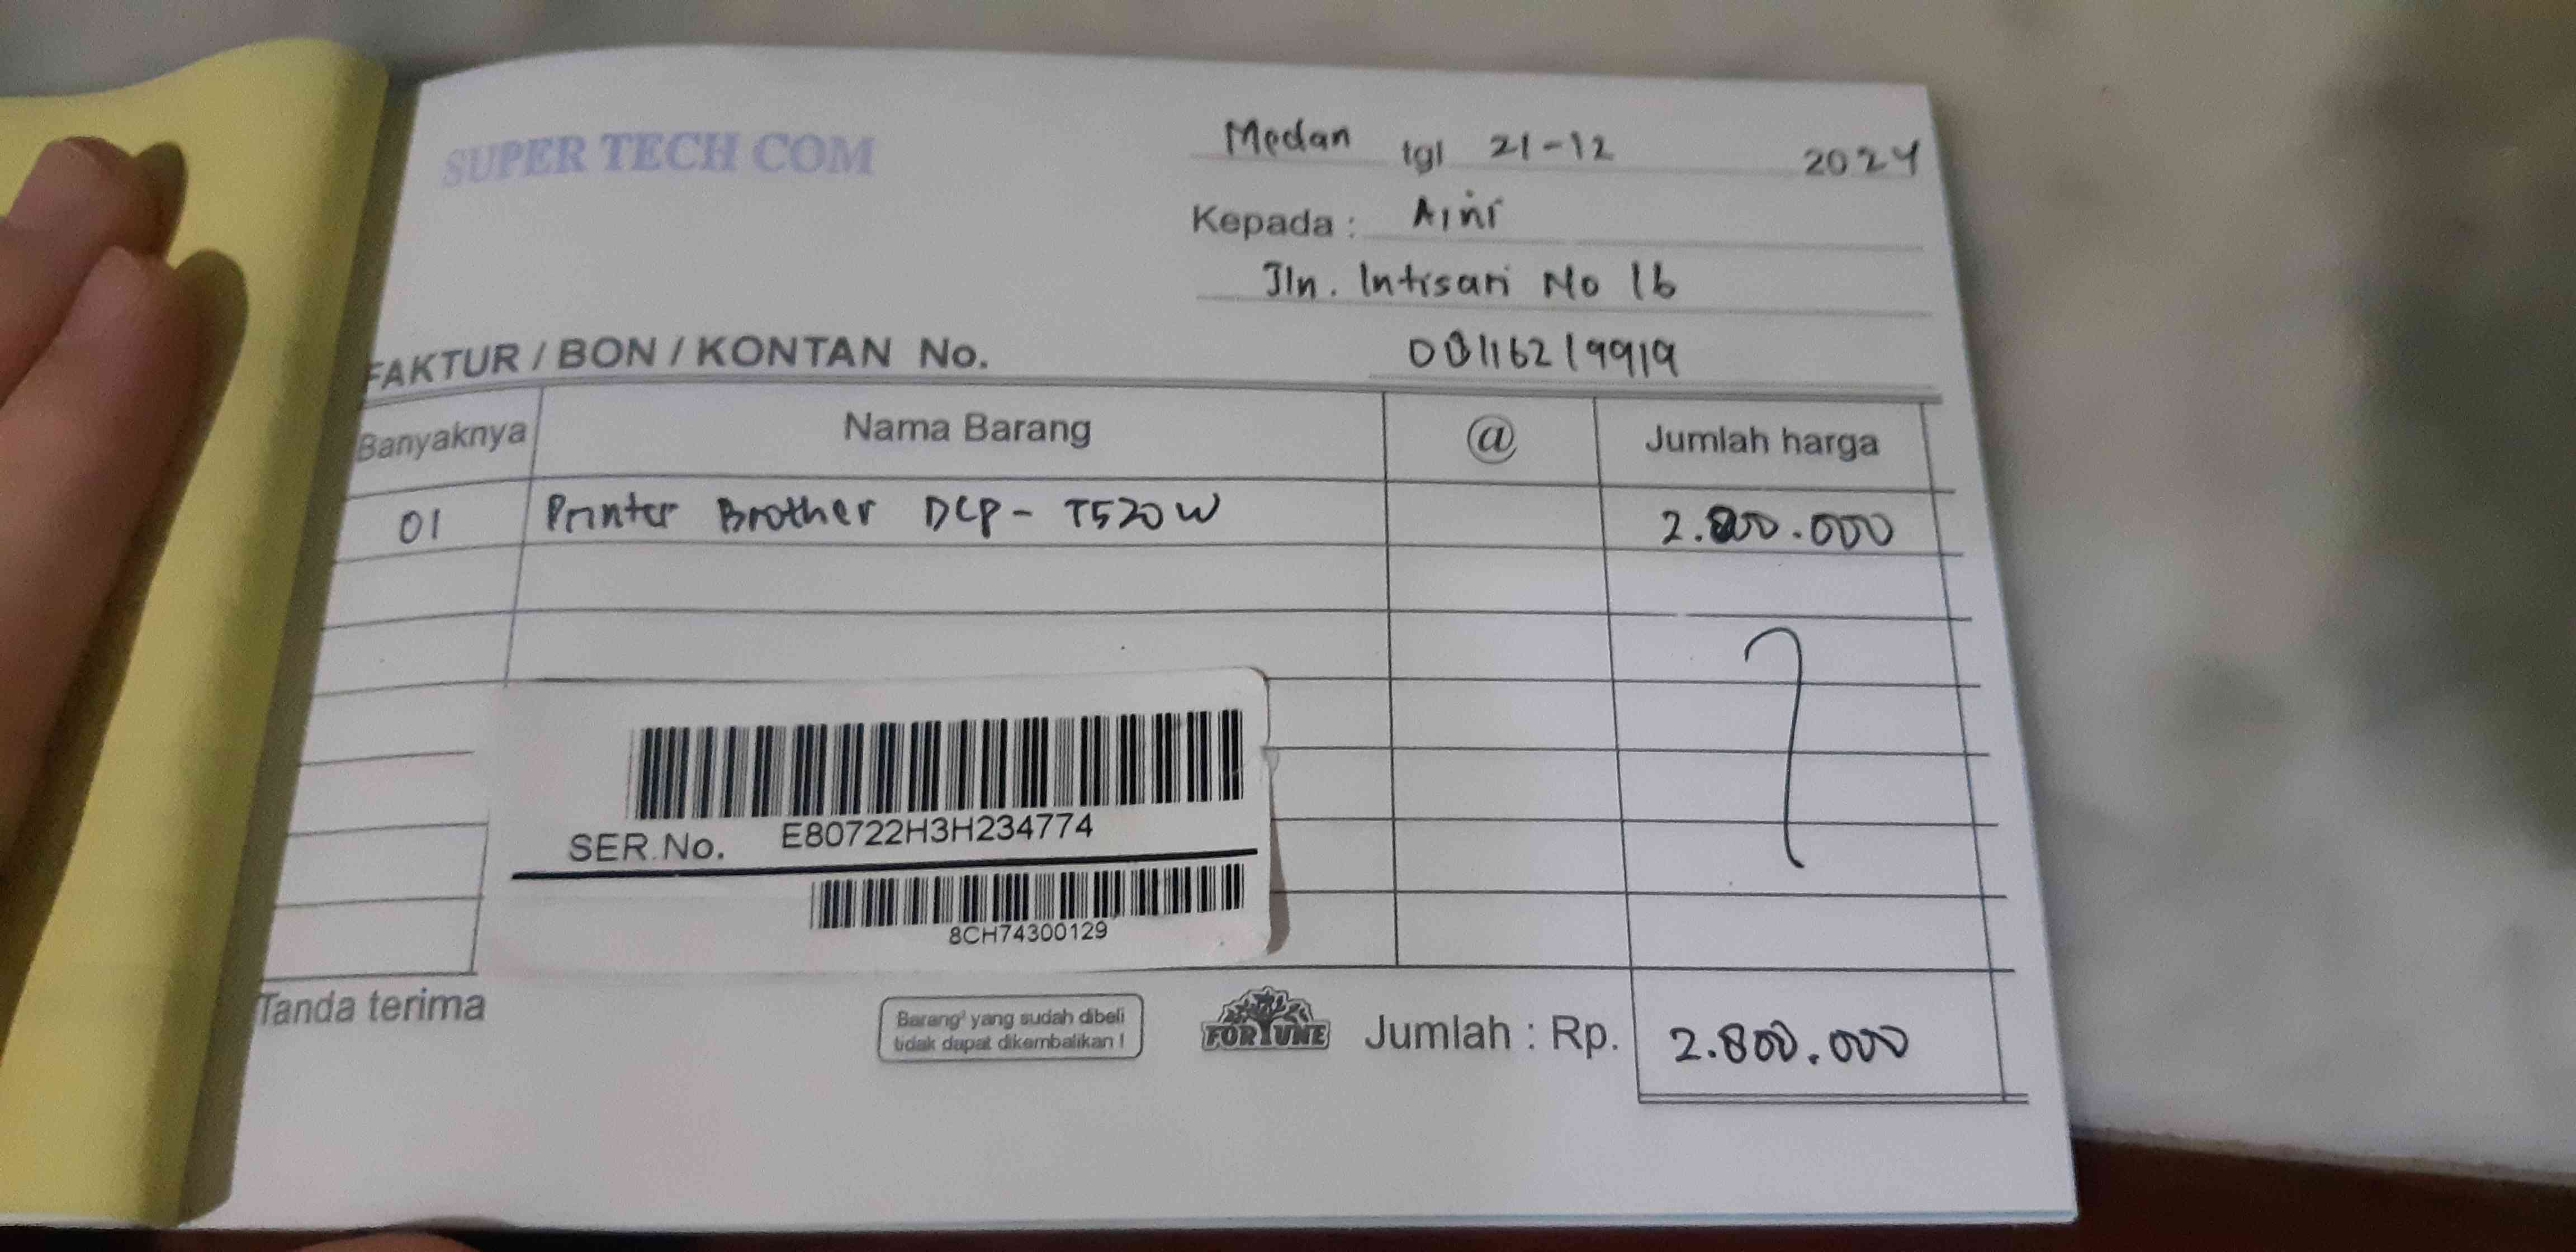 SUPER TECH COM
Medan tgl 21-12 2024
Kepada : Aini
Jln. Intisari No 16
FAKTUR / BON / KONTAN No.
08116219919
Banyaknya Nama Barang @ Jumlah harga
01 Printer Brother DCP - T520W 2.800.000
SER.No. E80722H3H234774
8CH74300129
Tanda terima
Barang² yang sudah dibeli
tidak dapat dikembalikan !
FORTUNE
Jumlah : Rp. 2.800.000